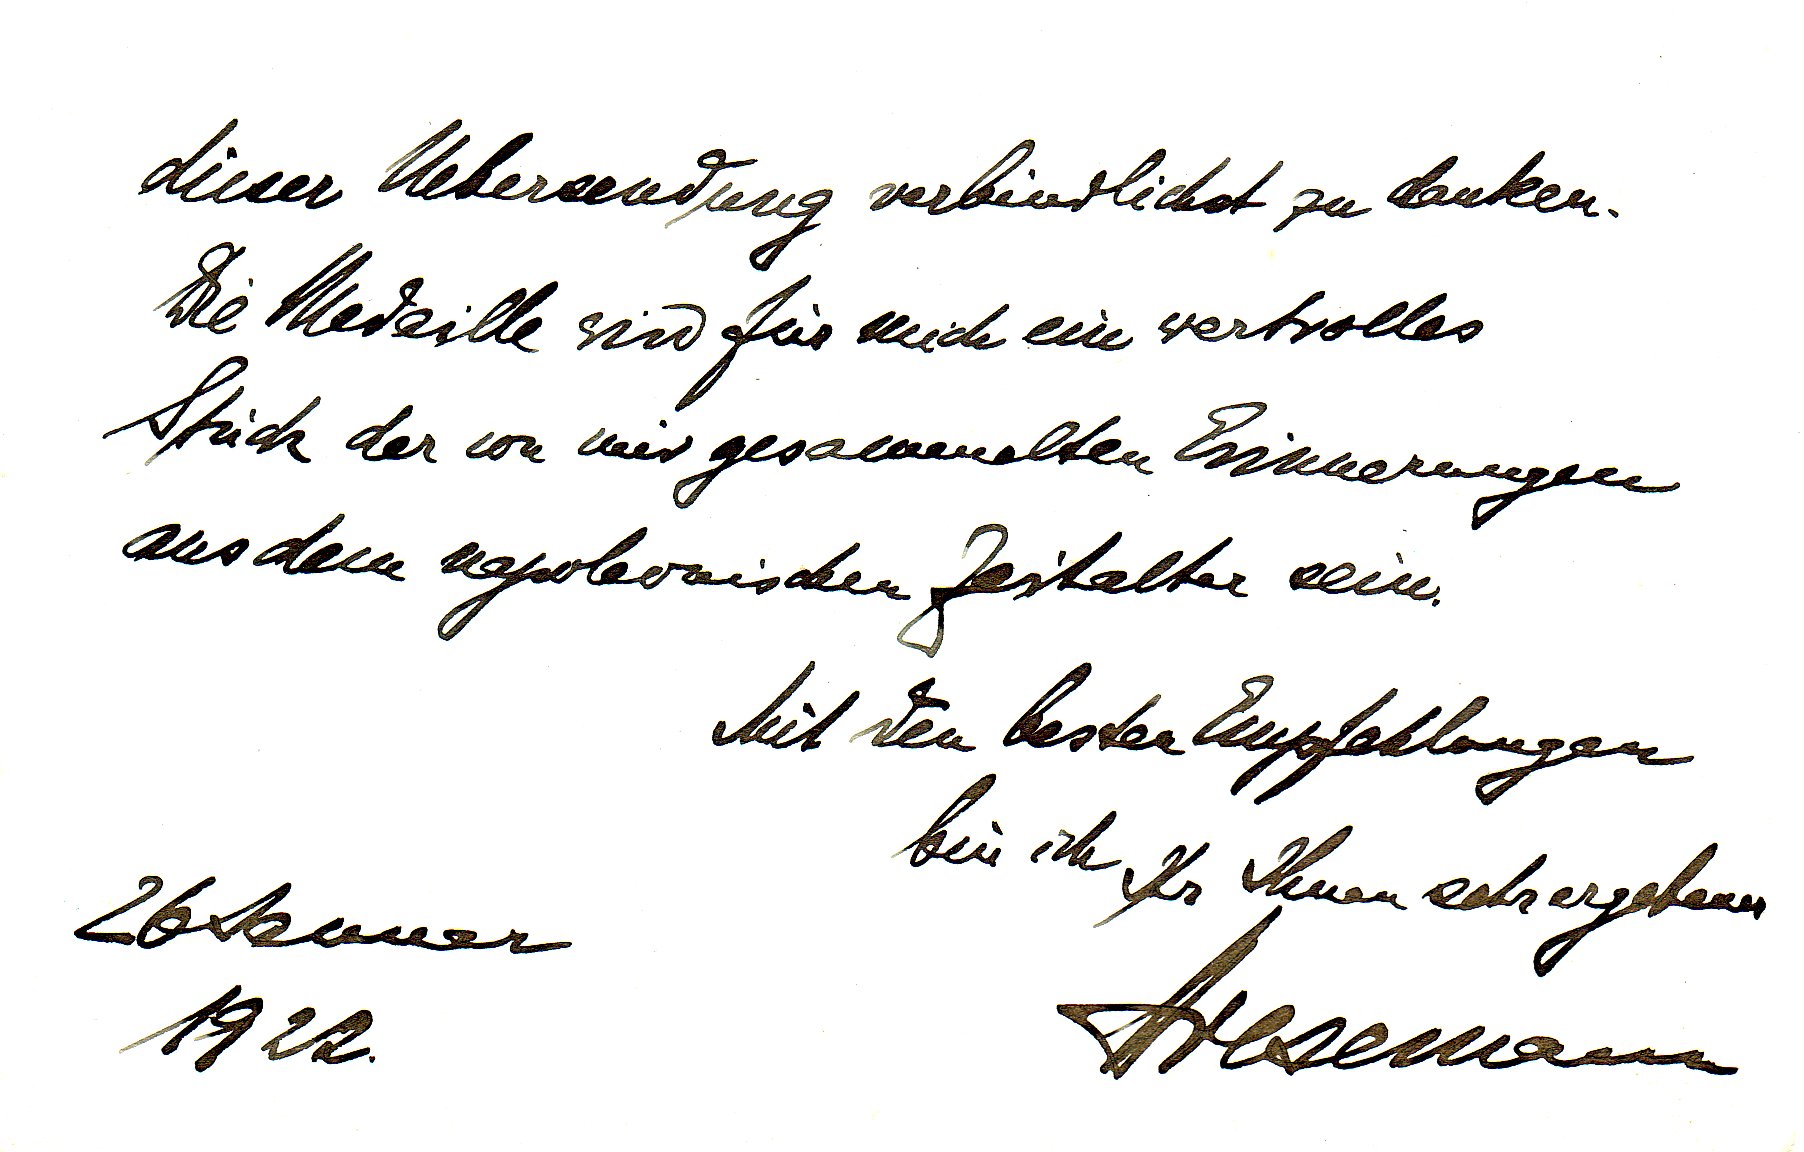 dieser Uebersendung verbindlichst zu danken.
Die Medaille wird für mich ein wertvolles
Stück der von mir gesammelten Erinnerungen
aus dem napoleonischen Zeitalter sein.
Mit den besten Empfehlungen
bin ich Ihr Ihnen sehr ergebener
Stresemann
26 Januar
1922.